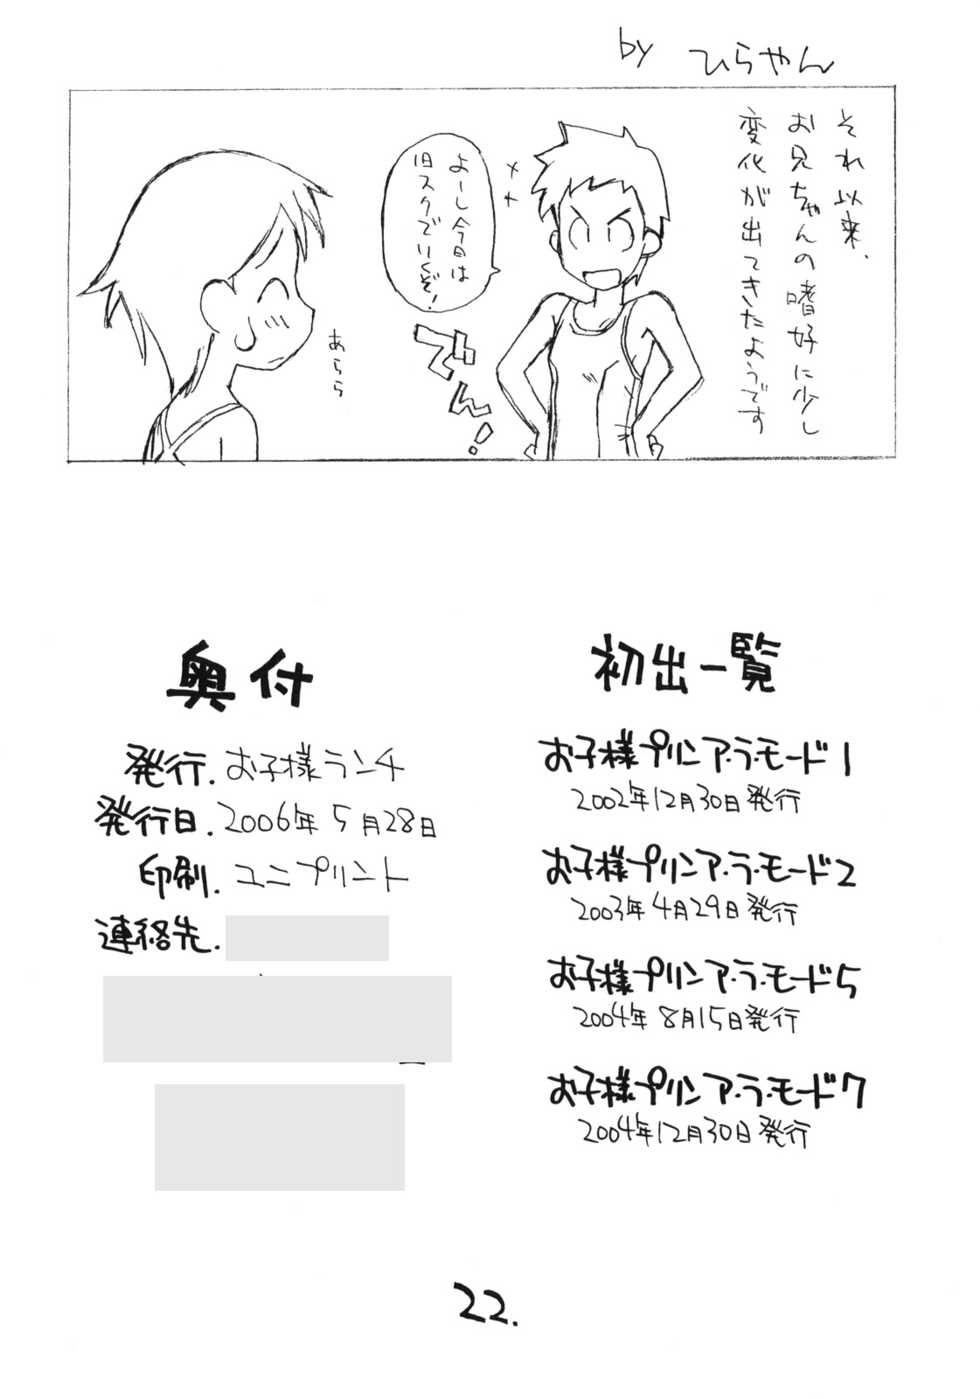 by ひらやん
それ以来、
お兄ちゃんの嗜好に少し
変化が出てきたようです
よーし今日は
旧スクでいくぞ!
でん!
あらら
初出一覧
お子様プリンア・ラ・モード1
2002年12月30日発行
お子様プリンア・ラ・モード2
2003年4月29日発行
お子様プリンア・ラ・モード5
2004年8月15日発行
お子様プリンア・ラ・モード7
2004年12月30日発行
奥付
発行.お子様ランチ
発行日.2006年5月28日
印刷.ユニプリント
連絡先.
22.